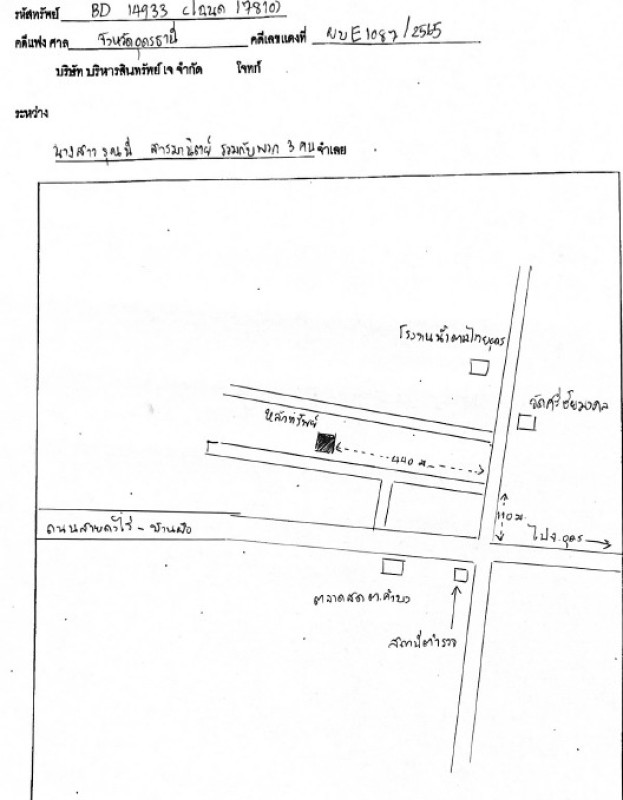 รหัสทรัพย์ BD 14933 (โฉนด 17810)
คดีแพ่ง ศาล จังหวัดอุดรธานี คดีเลขแดงที่ ผบE1087/2565
บริษัท บริหารสินทรัพย์ เจ จำกัด โจทก์
ระหว่าง
นางสาว สารมานิตย์ รวมกับพวก 3 คน จำเลย
โรงงานน้ำตาลไทยอุดร
วัดศรีชัยมงคล
หลักทรัพย์
440 ม.
110 ม.
ถนนสาย - บ้านผือ
ไป จ.อุดร
ตลาดสด ต.คำบง
สถานีตำรวจ